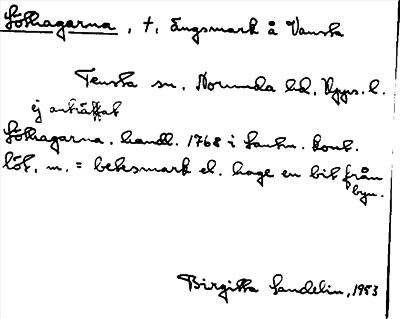 Löthagarna, †, Ängsmark å Vansta
Tensta sn, Norunda hd, Upps. l.
ej anträffat
Löthagarna, handl. 1768 i Lantm. kont.
löt, m. = betesmark el. hage en bit från
byn.
Birgitta Sandelin, 1953